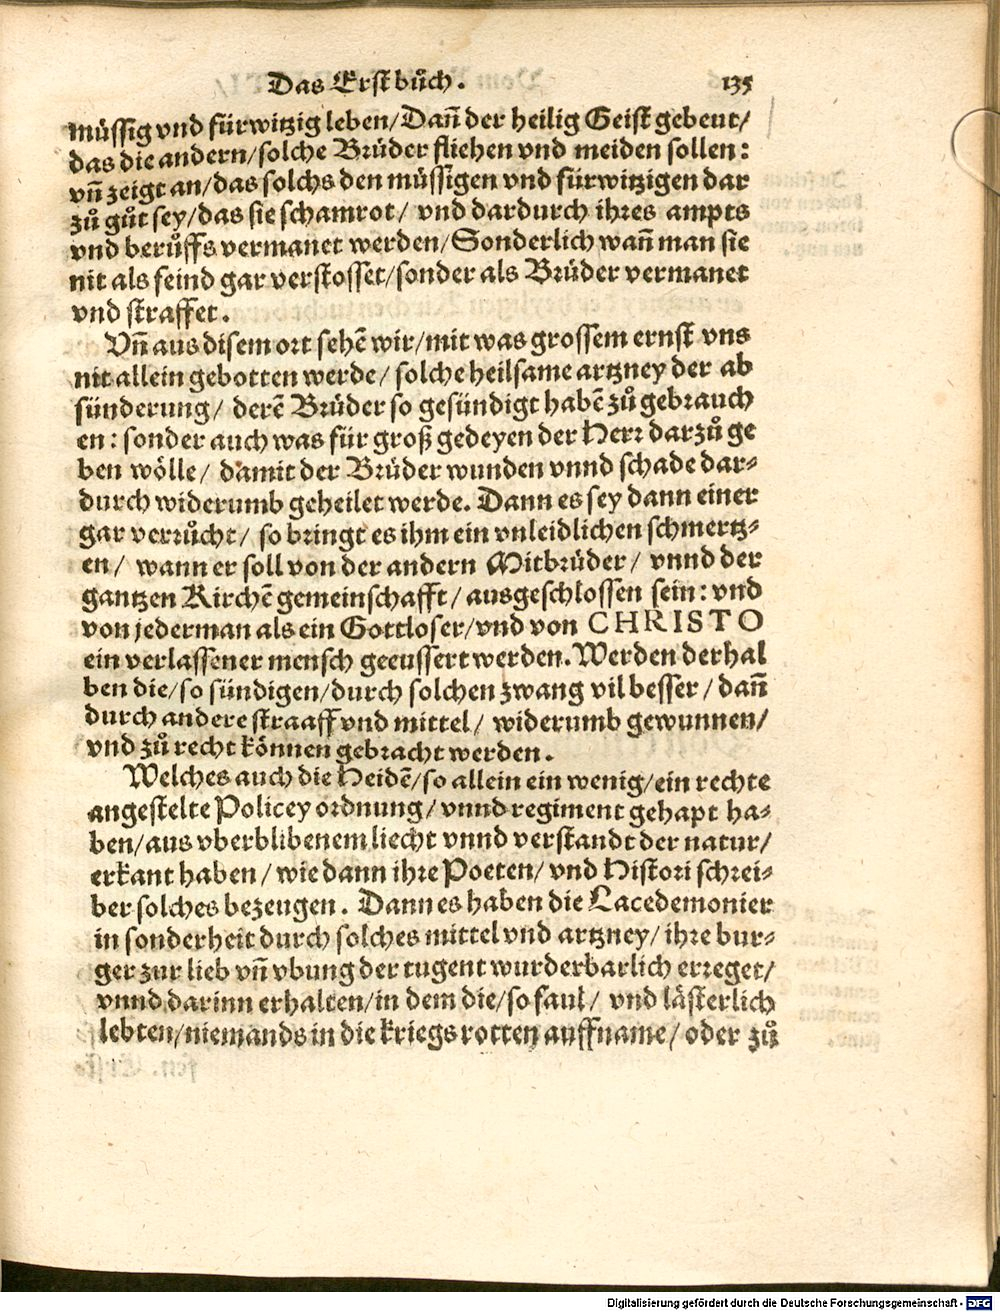 Das Erst bůch. 135
müssig vnd fürwitzig leben/Dañ der heilig Geist gebeut/
das die andern/solche Brüder fliehen vnd meiden sollen:
vñ zeigt an/das solchs den müssigen vnd fürwitzigen dar
zů gůt sey/das sie schamrot/ vnd dardurch ihres ampts
vnd berůffs vermanet werden/Sonderlich wañ man sie
nit als feind gar verstosset/sonder als Brüder vermanet
vnd straffet.
Vñ aus disem ort sehẽ wir/mit was grossem ernst vns
nit allein gebotten werde/ solche heilsame artzney der ab
sünderung/ derẽ Brüder so gesündigt habẽ zů gebrauch
en: sonder auch was für groß gedeyen der Herr darzů ge
ben wölle/ damit der Brüder wunden vnnd schade dar-
durch widerumb geheilet werde. Dann es sey dann einer
gar verrůcht/ so bringt es ihm ein vnleidlichen schmertz-
en/ wann er soll von der andern Mitbrüder/ vnnd der
gantzen Kirchẽ gemeinschafft/ ausgeschlossen sein: vnd
von jederman als ein Gottloser/vnd von CHRISTO
ein verlassener mensch geeussert werden. Werden derhal
ben die/so sündigen/durch solchen zwang vil besser/ dañ
durch andere straaff vnd mittel/ widerumb gewunnen/
vnd zů recht können gebracht werden.
Welches auch die Heidẽ/so allein ein wenig/ein rechte
angestelte Policey ordnung/ vnnd regiment gehapt ha-
ben/aus vberblibenem liecht vnnd verstandt der natur/
erkant haben/ wie dann ihre Poeten/ vnd Histori schrei-
ber solches bezeugen. Dann es haben die Lacedemonier
in sonderheit durch solches mittel vnd artzney/ ihre bur-
ger zur lieb vñ vbung der tugent wurderbarlich erreget/
vnnd darinn erhalten/in dem die/so faul/ vnd lästerlich
lebten/niemands in die kriegs rotten auffname/ oder zů
Digitalisierung gefördert durch die Deutsche Forschungsgemeinschaft - DFG